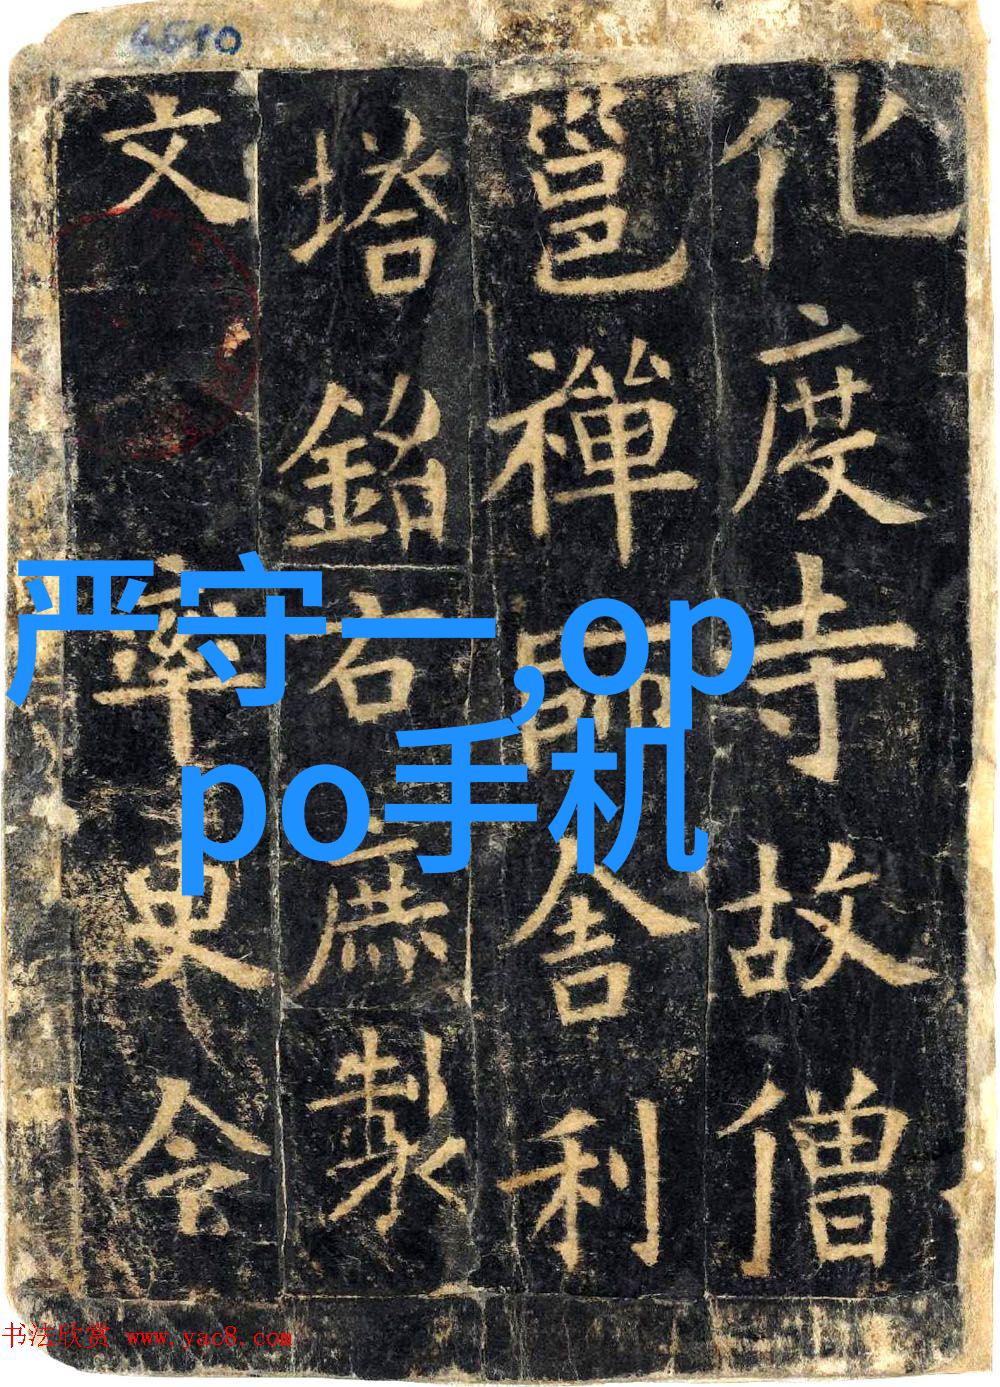 6510
化度寺故僧
邕禪師舍利
塔銘右庶製
文率更令
严守一,op
po手机
书法欣赏 www.yac8.com